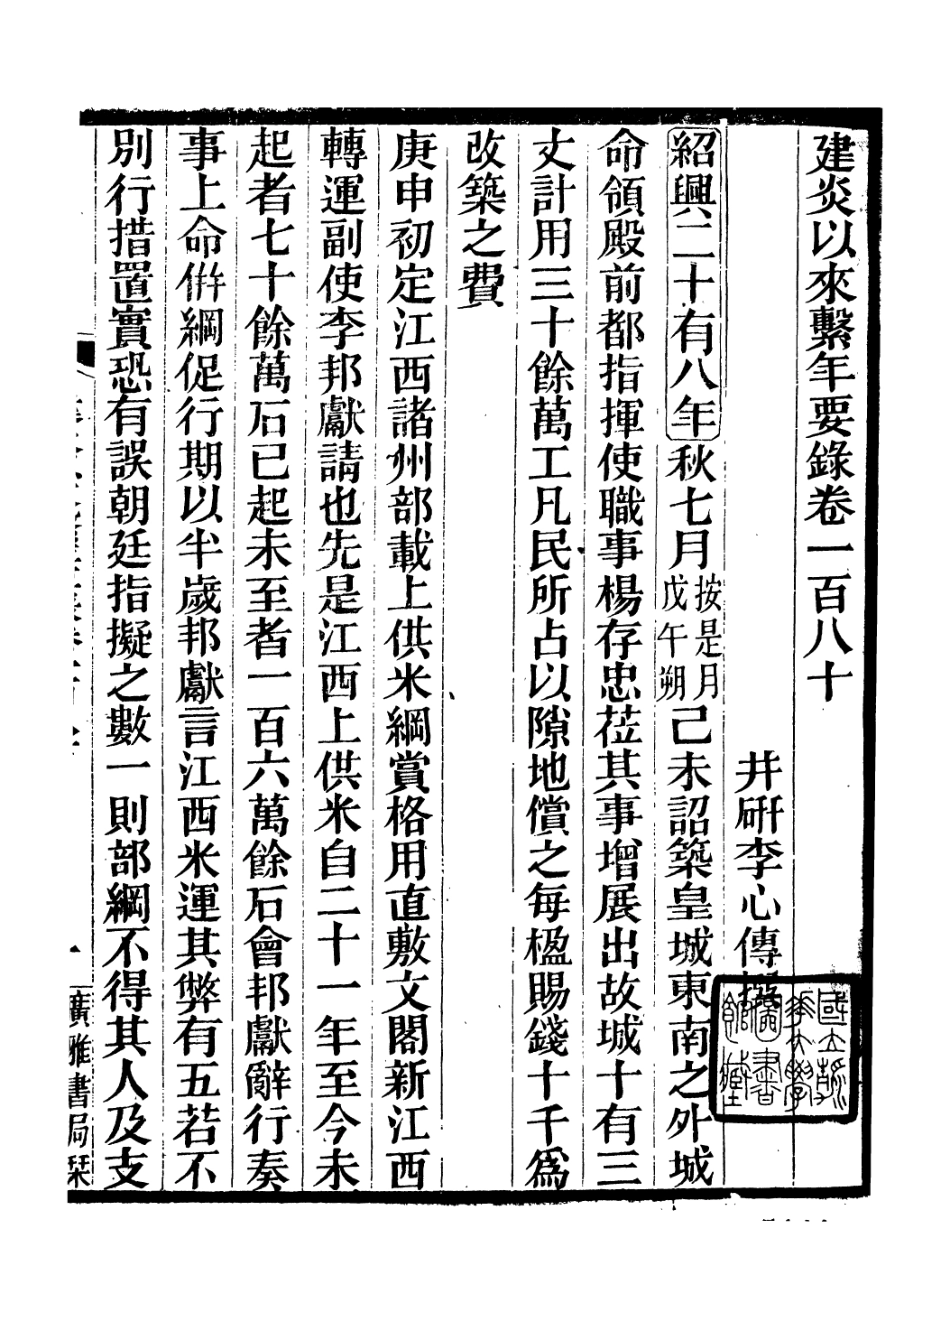 建炎以來繫年要錄卷一百八十
井研李心傳撰
紹興二十有八年秋七月按是月戊午朔己未詔築皇城東南之外城
命領殿前都指揮使職事楊存忠莅其事增展出故城十有三
丈計用三十餘萬工凡民所占以隙地償之每楹賜錢十千爲
改築之費
庚申初定江西諸州部載上供米綱賞格用直敷文閣新江西
轉運副使李邦獻請也先是江西上供米自二十一年至今未
起者七十餘萬石已起未至者一百六萬餘石會邦獻辭行奏
事上命併綱促行期以半歲邦獻言江西米運其弊有五若不
別行措置實恐有誤朝廷指擬之數一則部綱不得其人及支
一
廣雅書局栞
國立
大學
圖書
館藏